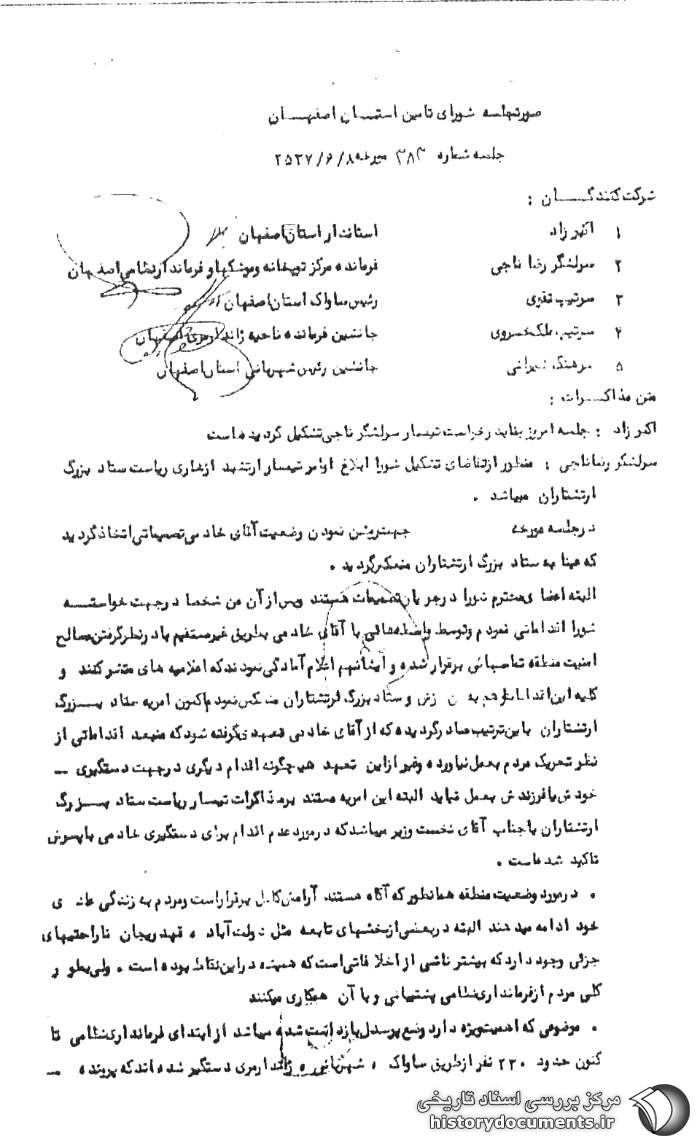 صورتجلسه شورای تامین استان اصفهان
جلسه شماره ۳۸۳ مورخه ۲۵۳۷/۶/۸
شرکت کنندگان :
۱ اکبرزاد استاندار استان اصفهان
۲ سرلشگر رضا ناجی فرمانده مرکز توپخانه و موشکها و فرماندار نظامی اصفهان
۳ سرتیپ تقوی رئیس ساواک استان اصفهان
۴ سرتیپ ملک خسروی جانشین فرمانده ناحیه ژاندارمری اصفهان
۵ سرهنگ جانشین رئیس شهربانی استان اصفهان
متن مذاکرات :
اکبرزاد : جلسه امروز بنابدرخواست تیمسار سرلشگر ناجی تشکیل گردیده است
سرلشگر رضا ناجی : منظور از تقاضای تشکیل شورا ابلاغ اوامر تیمسار ارتشبد ازهاری ریاست ستاد بزرگ
ارتشتاران میباشد .
درجلسه مورخه جهت روشن نمودن وضعیت آقای خادمی تصمیماتی اتخاذ گردید
که عینا به ستاد بزرگ ارتشتاران منعکس گردید .
البته اعضای محترم شورا در جریان تصمیمات هستند وپس از آن من شخصا درجهت خواسته
شورا اقداماتی نمودم وتوسط واسطه هائی با آقای خادمی بطریق غیرمستقیم بادرنظر گرفتن مصالح
امنیت منطقه تماسهائی برقرار شده و ایشانهم اعلام آمادگی نمودند که اعلامیه های منتشر کنند و
کلیه این اقدامات را هم به زش و ستاد بزرگ ارتشتاران منعکس نمودم اکنون امریه ستاد بزرگ
ارتشتاران باین ترتیب صادر گردیده که از آقای خادمی تعهدی گرفته شود که منبعد اقداماتی از
نظر تحریک مردم بعمل نیاورده وغیر از این تعهد هیچگونه اقدام دیگری درجهت دستگیری --
خودش یا فرزندش بعمل نیاید البته این امریه مستند برمذاکرات تیمسار ریاست ستاد بزرگ
ارتشتاران باجناب آقای نخست وزیر میباشد که درمورد عدم اقدام برای دستگیری خادمی یا پسرش
تاکید شده است .
. درمورد وضعیت منطقه همانطور که آگاه هستند آرامش کامل برقرار است ومردم به زندگی عادی
خود ادامه میدهند البته دربعضی از بخشهای تابعه مثل دولت آباد ، قهدریجان ناراحتیهای
جزئی وجود دارد که بیشتر ناشی از اختلافاتی است که همیشه دراین نقاط بوده است . ولی بطور
کلی مردم از فرمانداری نظامی پشتیبانی و با آن همکاری میکنند
. موضوعی که اهمیت ویژه دارد وضع پرسنل بازداشت شده میباشد از ابتدای فرمانداری نظامی تا
کنون حدود ۲۲۰ نفر ازطریق ساواک ، شهربانی ، ژاندارمری دستگیر شده اند که پرونده --
مرکز بررسی اسناد تاریخی
historydocuments.ir